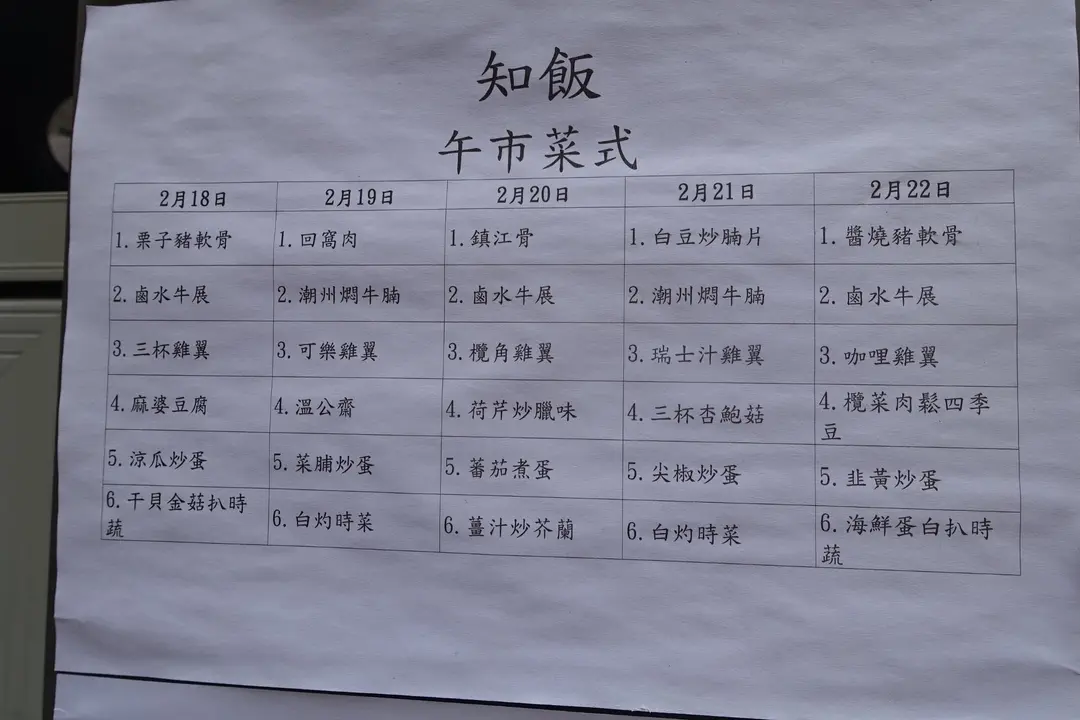 知飯
午市菜式
2月18日 2月19日 2月20日 2月21日 2月22日
1.栗子豬軟骨 1.回窩肉 1.鎮江骨 1.白豆炒腩片 1.醬燒豬軟骨
2.鹵水牛展 2.潮州燜牛腩 2.鹵水牛展 2.潮州燜牛腩 2.鹵水牛展
3.三杯雞翼 3.可樂雞翼 3.欖角雞翼 3.瑞士汁雞翼 3.咖哩雞翼
4.麻婆豆腐 4.溫公齋 4.荷芹炒臘味 4.三杯杏鮑菇 4.欖菜肉鬆四季
豆
5.涼瓜炒蛋 5.菜脯炒蛋 5.蕃茄煮蛋 5.尖椒炒蛋 5.韭黃炒蛋
6.干貝金菇扒時
蔬 6.白灼時菜 6.薑汁炒芥蘭 6.白灼時菜 6.海鮮蛋白扒時
蔬